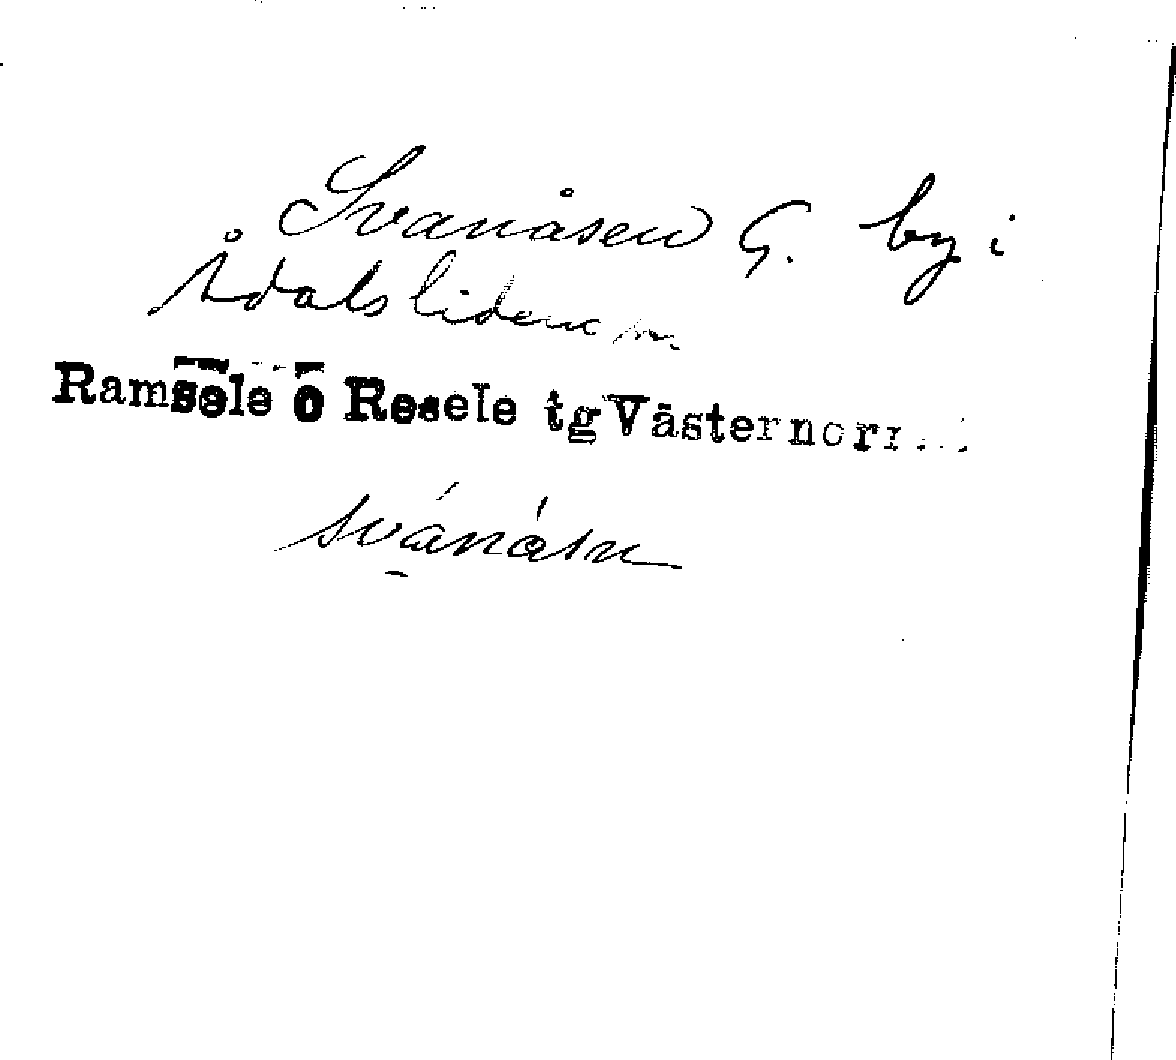 Svanåsen G. by i
Ådalsliden sn.
Ramsele o Resele tg Västernorr
svánásn